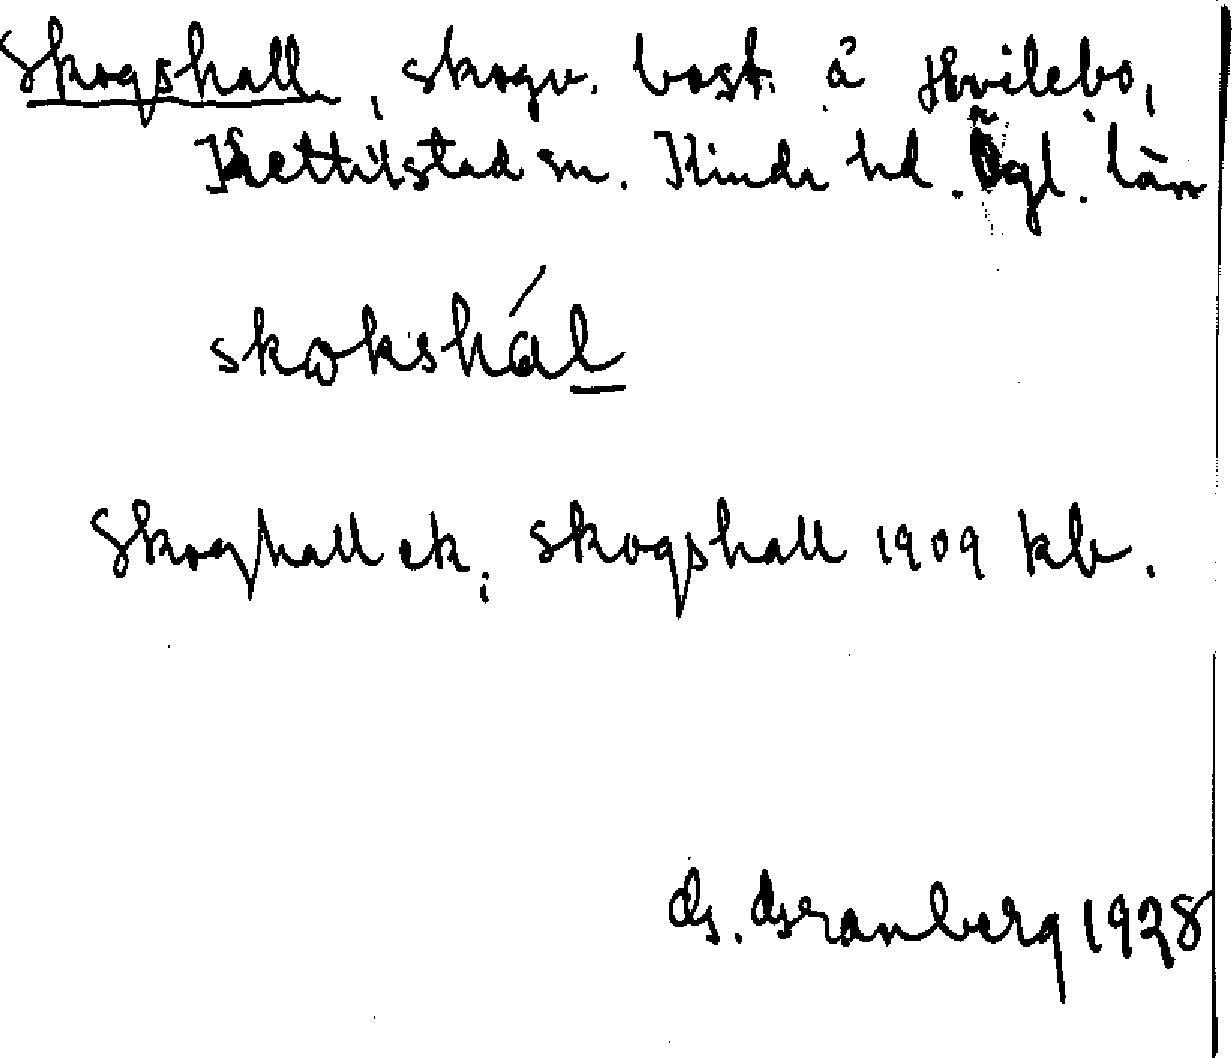 Skogshall, skogv. bost. å Hvilebo,
Kettilstad sn. Kinda hd. Ögl. län
skωkshál
Skoghall ek; Skogshall 1909 kb.
G. Granberg 1928